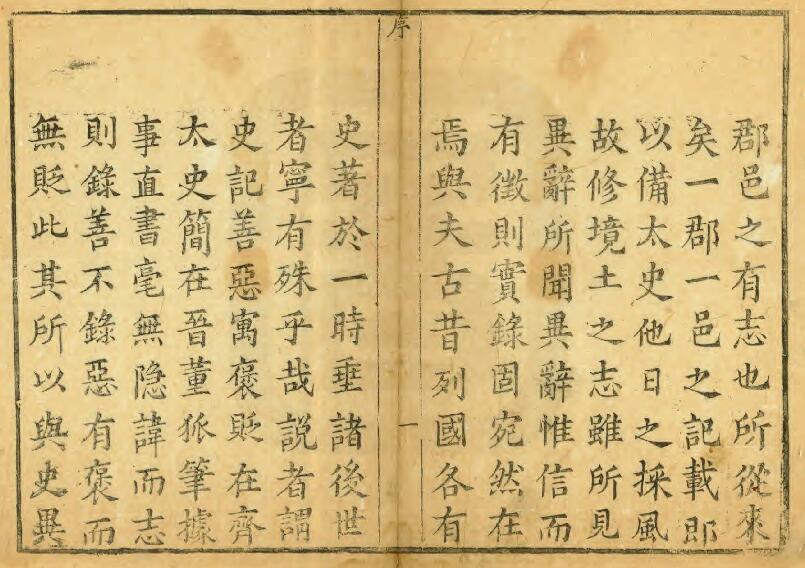 郡邑之有志也所從來
矣一郡一邑之記載即
以備太史他日之採風
故修境土之志雖所見
異辭所聞異辭惟信而
有徵則實錄固宛然在
焉與夫古昔列國各有
序
一
史著於一時垂諸後世
者寧有殊乎哉説者謂
史記善惡寓褒貶在齊
太史簡在晉董狐筆據
事直書毫無隐諱而志
則錄善不錄惡有褒而
無貶此其所以與史異